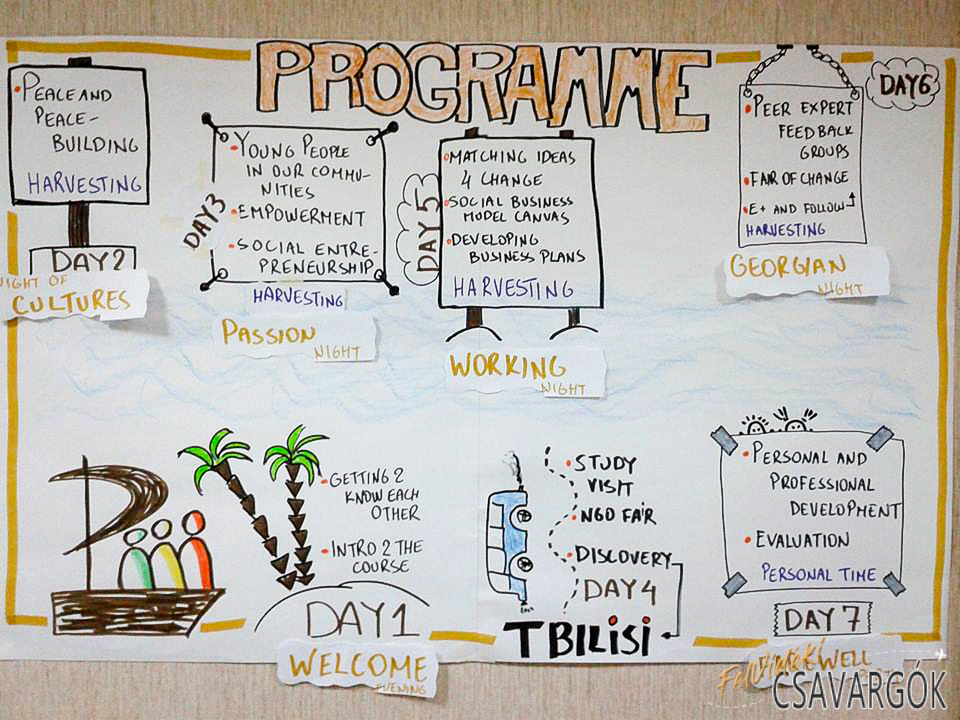 PROGRAMME
• PEACE AND
PEACE-
BUILDING
HARVESTING
DAY 2
NIGHT OF
CULTURES
DAY3
• YOUNG PEOPLE
IN OUR COMMU-
NITIES
• EMPOWERMENT
• SOCIAL ENTRE-
PRENEURSHIP
HARVESTING
PASSION
NIGHT
DAY 5
• MATCHING IDEAS
4 CHANGE
• SOCIAL BUSINESS
MODEL CANVAS
• DEVELOPING
BUSINESS PLANS
HARVESTING
WORKING
NIGHT
DAY6
• PEER EXPERT
FEEDBACK
GROUPS
• FAIR OF CHANGE
• E+ AND FOLLOW
HARVESTING
GEORGIAN
NIGHT
• GETTING 2
KNOW EACH
OTHER
• INTRO 2 THE
COURSE
DAY1
WELCOME
EVENING
• STUDY
VISIT
• NGO FAIR
• DISCOVERY
DAY4
TBILISI
• PERSONAL AND
PROFESSIONAL
DEVELOPMENT
• EVALUATION
PERSONAL TIME
DAY 7
Felvidéki
CSAVARGÓK